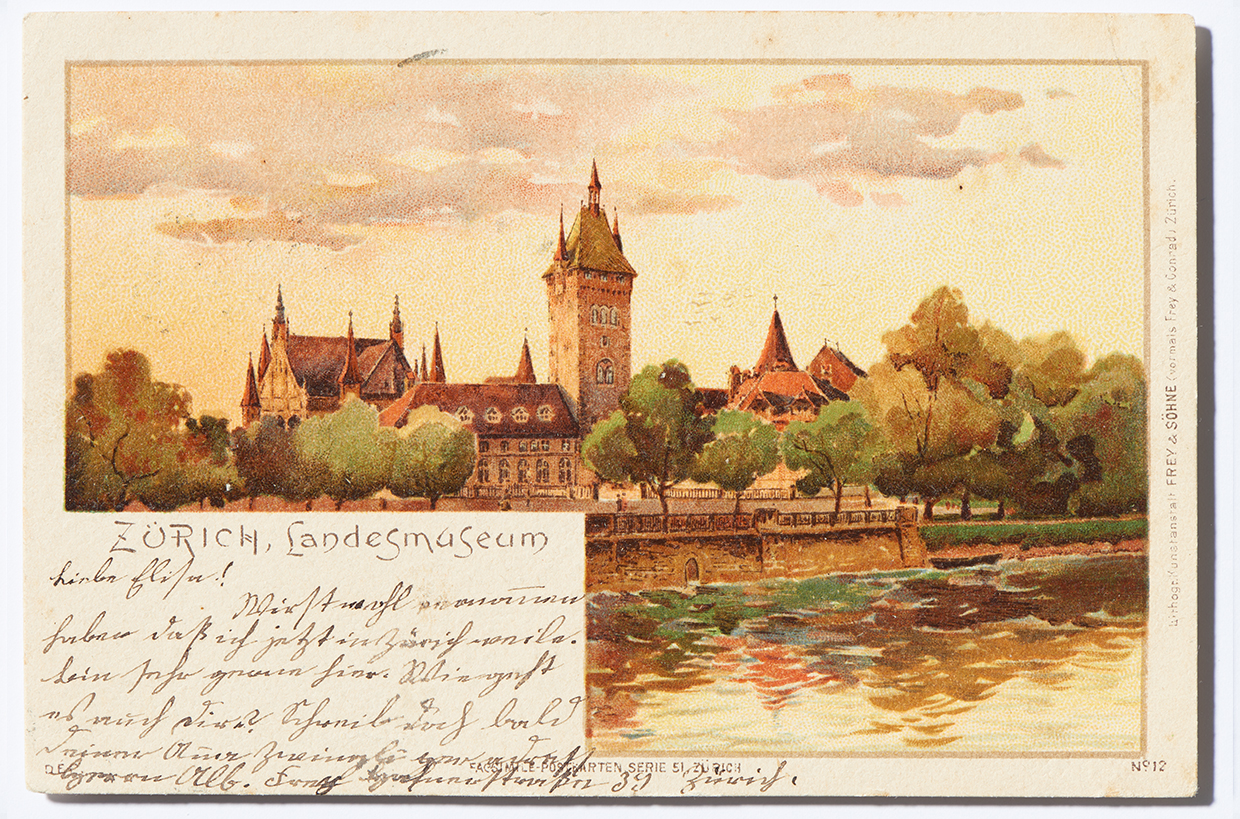 ZÜRICH, Landesmuseum
Liebe Elisa!
Wirst wohl vernom̅en
haben daß ich jetzt in Zürich weile.
bin sehr gerne hier. Wie geht
es auch dir? Schreib doch bald
deiner Anna Zwingli
Herrn Alb. Frey straße 39 Zürich.
FACSIMILE-POSTKARTEN SERIE 51, ZÜRICH
Nº 12
Lithogr. Kunstanstalt FREY & SÖHNE (vormals Frey & Conrad) Zürich.